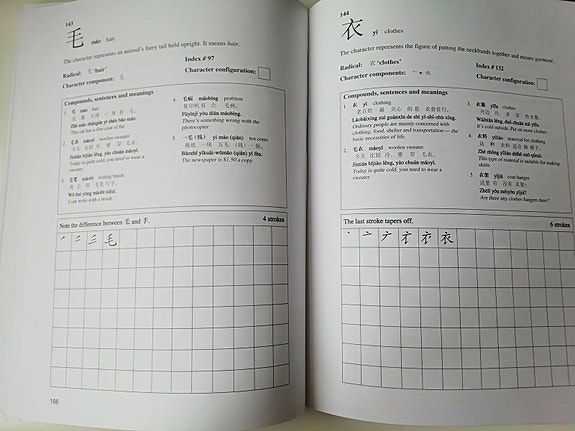 143
毛 máo hair
The character represents an animal's furry tail held upright. It means hair.
Radical: 毛 'hair'
Index # 97
Character component: 毛
Character configuration:
Compounds, sentences and meanings
1. 毛 máo hair
Zhè zhī māo yì shēn bái máo.
This cat has a fine coat of fur.
2. 毛衣 máoyī woolen sweater
今天比较冷,要穿毛衣。
Jīntiān bǐjiào lěng, yào chuān máoyī.
Today is quite cold, you need to wear a
sweater.
3. 毛笔 máobǐ writing brush
我会用毛笔写字。
I can write with a brush.
4. 毛病 máobìng problem
复印机有点毛病。
Fùyìnjī yǒu diǎn máobìng.
There's something wrong with the
photocopier.
5. 一毛(钱) yì máo (qián) ten cents
报纸一块五毛(钱)一份。
Bàozhǐ yíkuài-wǔmáo (qián) yí fèn.
The newspaper is $1.50 a copy
Note the difference between 毛 and 手.
4 strokes
毛
166
144
衣 yī clothes
The character represents the figure of putting the neckbands together and means garment.
Radical: 衣 'clothes'
Index # 132
Character components: 亠 +
Character configuration:
Compounds, sentences and meanings
1. 衣 yī clothing
老百姓最关心的是衣食住行。
Lǎobǎixìng zuì guānxīn de shì yī-shí-zhù-xíng.
Ordinary people are mainly concerned with
clothing, food, shelter and transportation — the
basic necessities of life.
2. 毛衣 máoyī woolen sweater
今天比较冷,要穿毛衣。
Jīntiān bǐjiào lěng, yào chuān máoyī.
Today is quite cold, you need to wear a
sweater.
3. 衣服 yīfu clothes
外边冷,多穿点衣服。
Wàibiān lěng, duō chuān diǎn yīfu.
It's cold outside. Put on more clothes.
4. 衣料 yīliào material for clothing
这种衣料适合做裙子。
Zhè zhǒng yīliào shìhé zuò qúnzi.
This type of material is suitable for making
skirts.
5. 衣架 yījià coat hanger
这里有没有衣架?
Zhèlǐ yǒu méiyǒu yījià?
Are there any clothes hangers here?
The last stroke tapers off.
6 strokes
衣